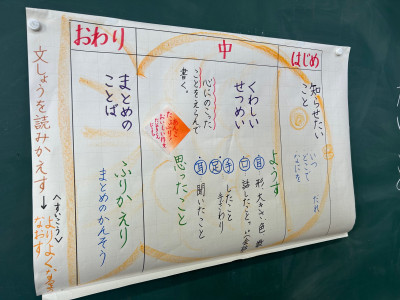 はじめ
知らせたい
こと
いつ
どこで
だれ
なにを
中
くわしい
せつめい
ようす
目 形 大きさ 色 数
口 話したこと
手 したこと
手ざわり
足
耳 聞いたこと
心にのこった
ことをえらんで
書く。
思ったこと
おわり
まとめの
ことば
ふりかえり
まとめのかんそう
文しょうを読みかえす
↓
〈すいこう〉
なおす